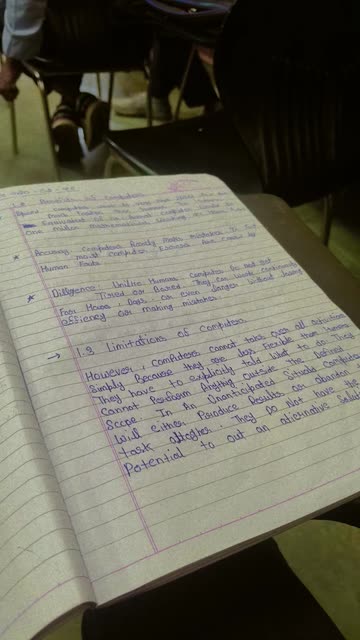 1.8 Benefits of Computers
Speed Computers
much faster than
Equivalent of a
one million Mathematicians Working
* Accuracy Computers Rarely Make mistakes. In fact
most computer Errors are caused by
Human Faults
* Diligence, Unlike Humans, Computers Do not get
Tired or Bored. They can work continuously
For Hours Days or even longer without losing
efficiency or making mistakes.
→ 1.9 Limitations of Computers
However, Computers cannot take over all activities
Simply Because they are less flexible than Humans
They have to explicitly told What to do. They
Cannot Perform Anything outside the Defined
Scope. In An Unanticipated Situate Computers
Will either Produce Results or abandon the
task altogher. They Do Not have the
Potential to out an alternative